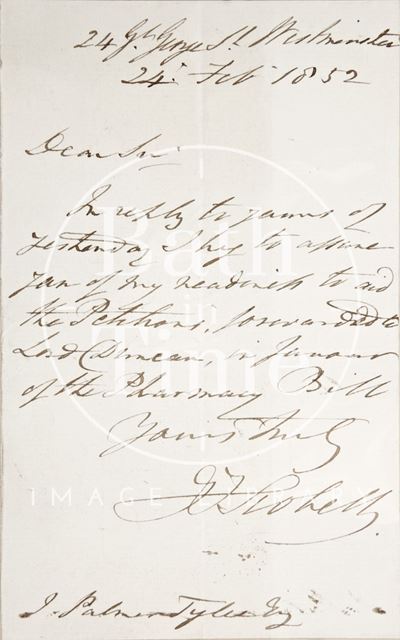 24 Gt. George St. Westminster
24. Feb 1852
Dear Sir
In reply to yours of
yesterday I beg to assure
you of my readiness to aid
the Petitions, forwarded to
Lord Duncan, in favour
of the Pharmacy Bill
Yours truly
J. Palmer Tylee Esq
Bath
in
Time
IMAGE LIBRARY